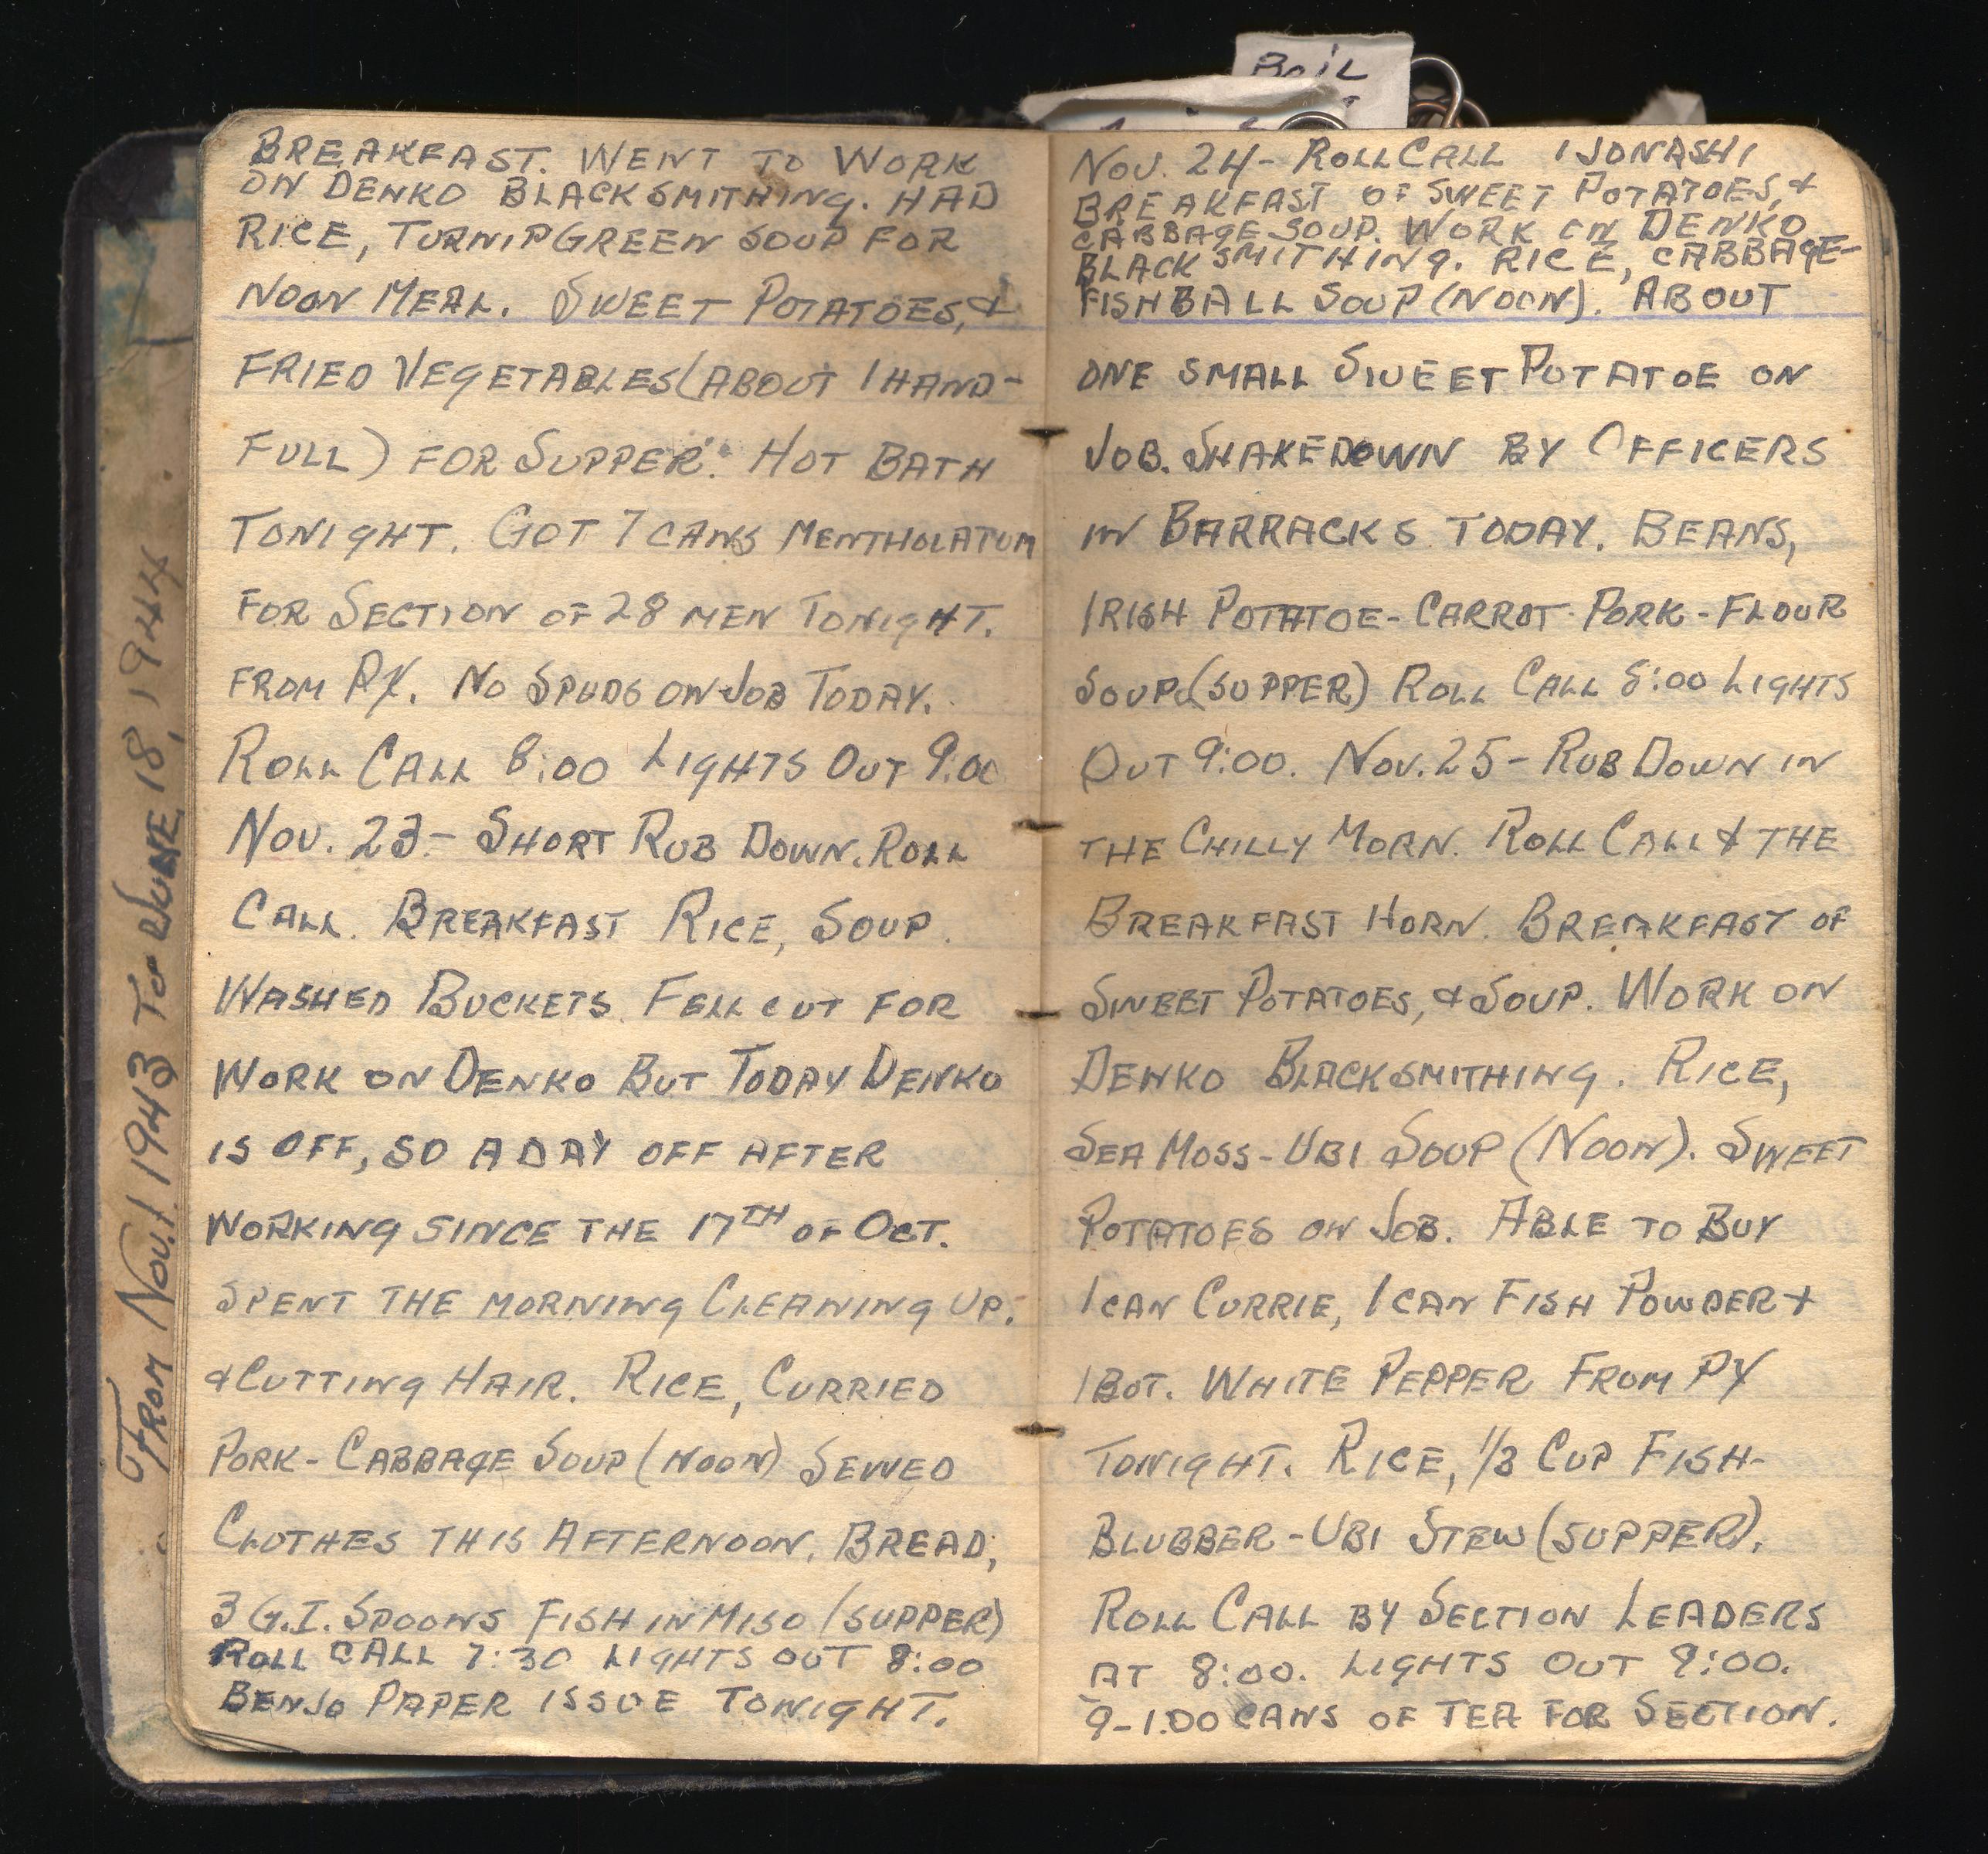 Boil
From Nov. 1 1943 To June 18, 1944
BREAKFAST. WENT TO WORK
ON DENKO BLACKSMITHING. HAD
RICE, TURNIP GREEN SOUP FOR
NOON MEAL. SWEET POTATOES, &
FRIED VEGETABLES (ABOUT 1 HAND-
FULL) FOR SUPPER. HOT BATH
TONIGHT. GOT 7 CANS MENTHOLATUM
FOR SECTION OF 28 MEN TONIGHT.
FROM PX. NO SPUDS ON JOB TODAY.
ROLL CALL 8:00 LIGHTS OUT 9:00
NOV. 23- SHORT RUB DOWN. ROLL
CALL. BREAKFAST RICE, SOUP.
WASHED BUCKETS. FELL OUT FOR
WORK ON DENKO BUT TODAY DENKO
IS OFF, SO A DAY OFF AFTER
WORKING SINCE THE 17TH OF OCT.
SPENT THE MORNING CLEANING UP.
& CUTTING HAIR. RICE, CURRIED
PORK-CABBAGE SOUP (NOON) SEWED
CLOTHES THIS AFTERNOON. BREAD,
3 G.I. SPOONS FISH IN MISO (SUPPER)
ROLL CALL 7:30 LIGHTS OUT 8:00
BENJO PAPER ISSUE TONIGHT.
NOV. 24- ROLL CALL 1 JONASHI
BREAKFAST OF SWEET POTATOES, &
CABBAGE SOUP. WORK ON DENKO
BLACKSMITHING. RICE, CABBAGE-
FISHBALL SOUP (NOON). ABOUT
ONE SMALL SWEET POTATOE ON
JOB. SHAKEDOWN BY OFFICERS
IN BARRACKS TODAY. BEANS,
IRISH POTATOE-CARROT-PORK-FLOUR
SOUP. (SUPPER) ROLL CALL 8:00 LIGHTS
OUT 9:00. NOV. 25- RUB DOWN IN
THE CHILLY MORN. ROLL CALL & THE
BREAKFAST HORN. BREAKFAST OF
SWEET POTATOES, & SOUP. WORK ON
DENKO BLACKSMITHING. RICE,
SEA MOSS-UBI SOUP (NOON). SWEET
POTATOES ON JOB. ABLE TO BUY
1 CAN CURRIE, 1 CAN FISH POWDER &
1 BOT. WHITE PEPPER FROM PX
TONIGHT. RICE, 1/3 CUP FISH-
BLUBBER-UBI STEW (SUPPER).
ROLL CALL BY SECTION LEADERS
AT 8:00. LIGHTS OUT 9:00.
9-1.00 CANS OF TEA FOR SECTION.